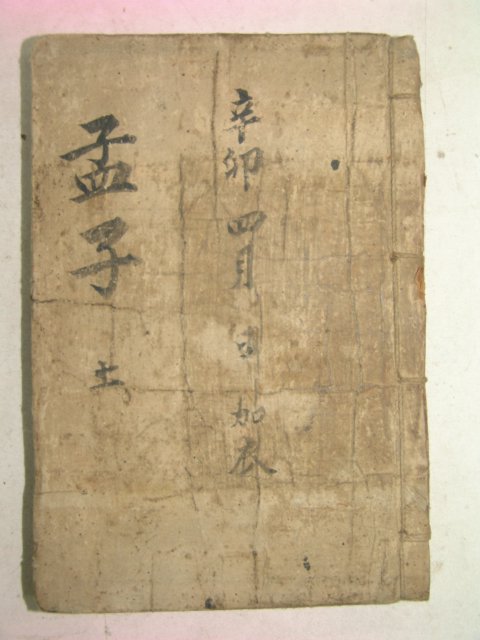 辛卯四月 日 加衣
孟子 土